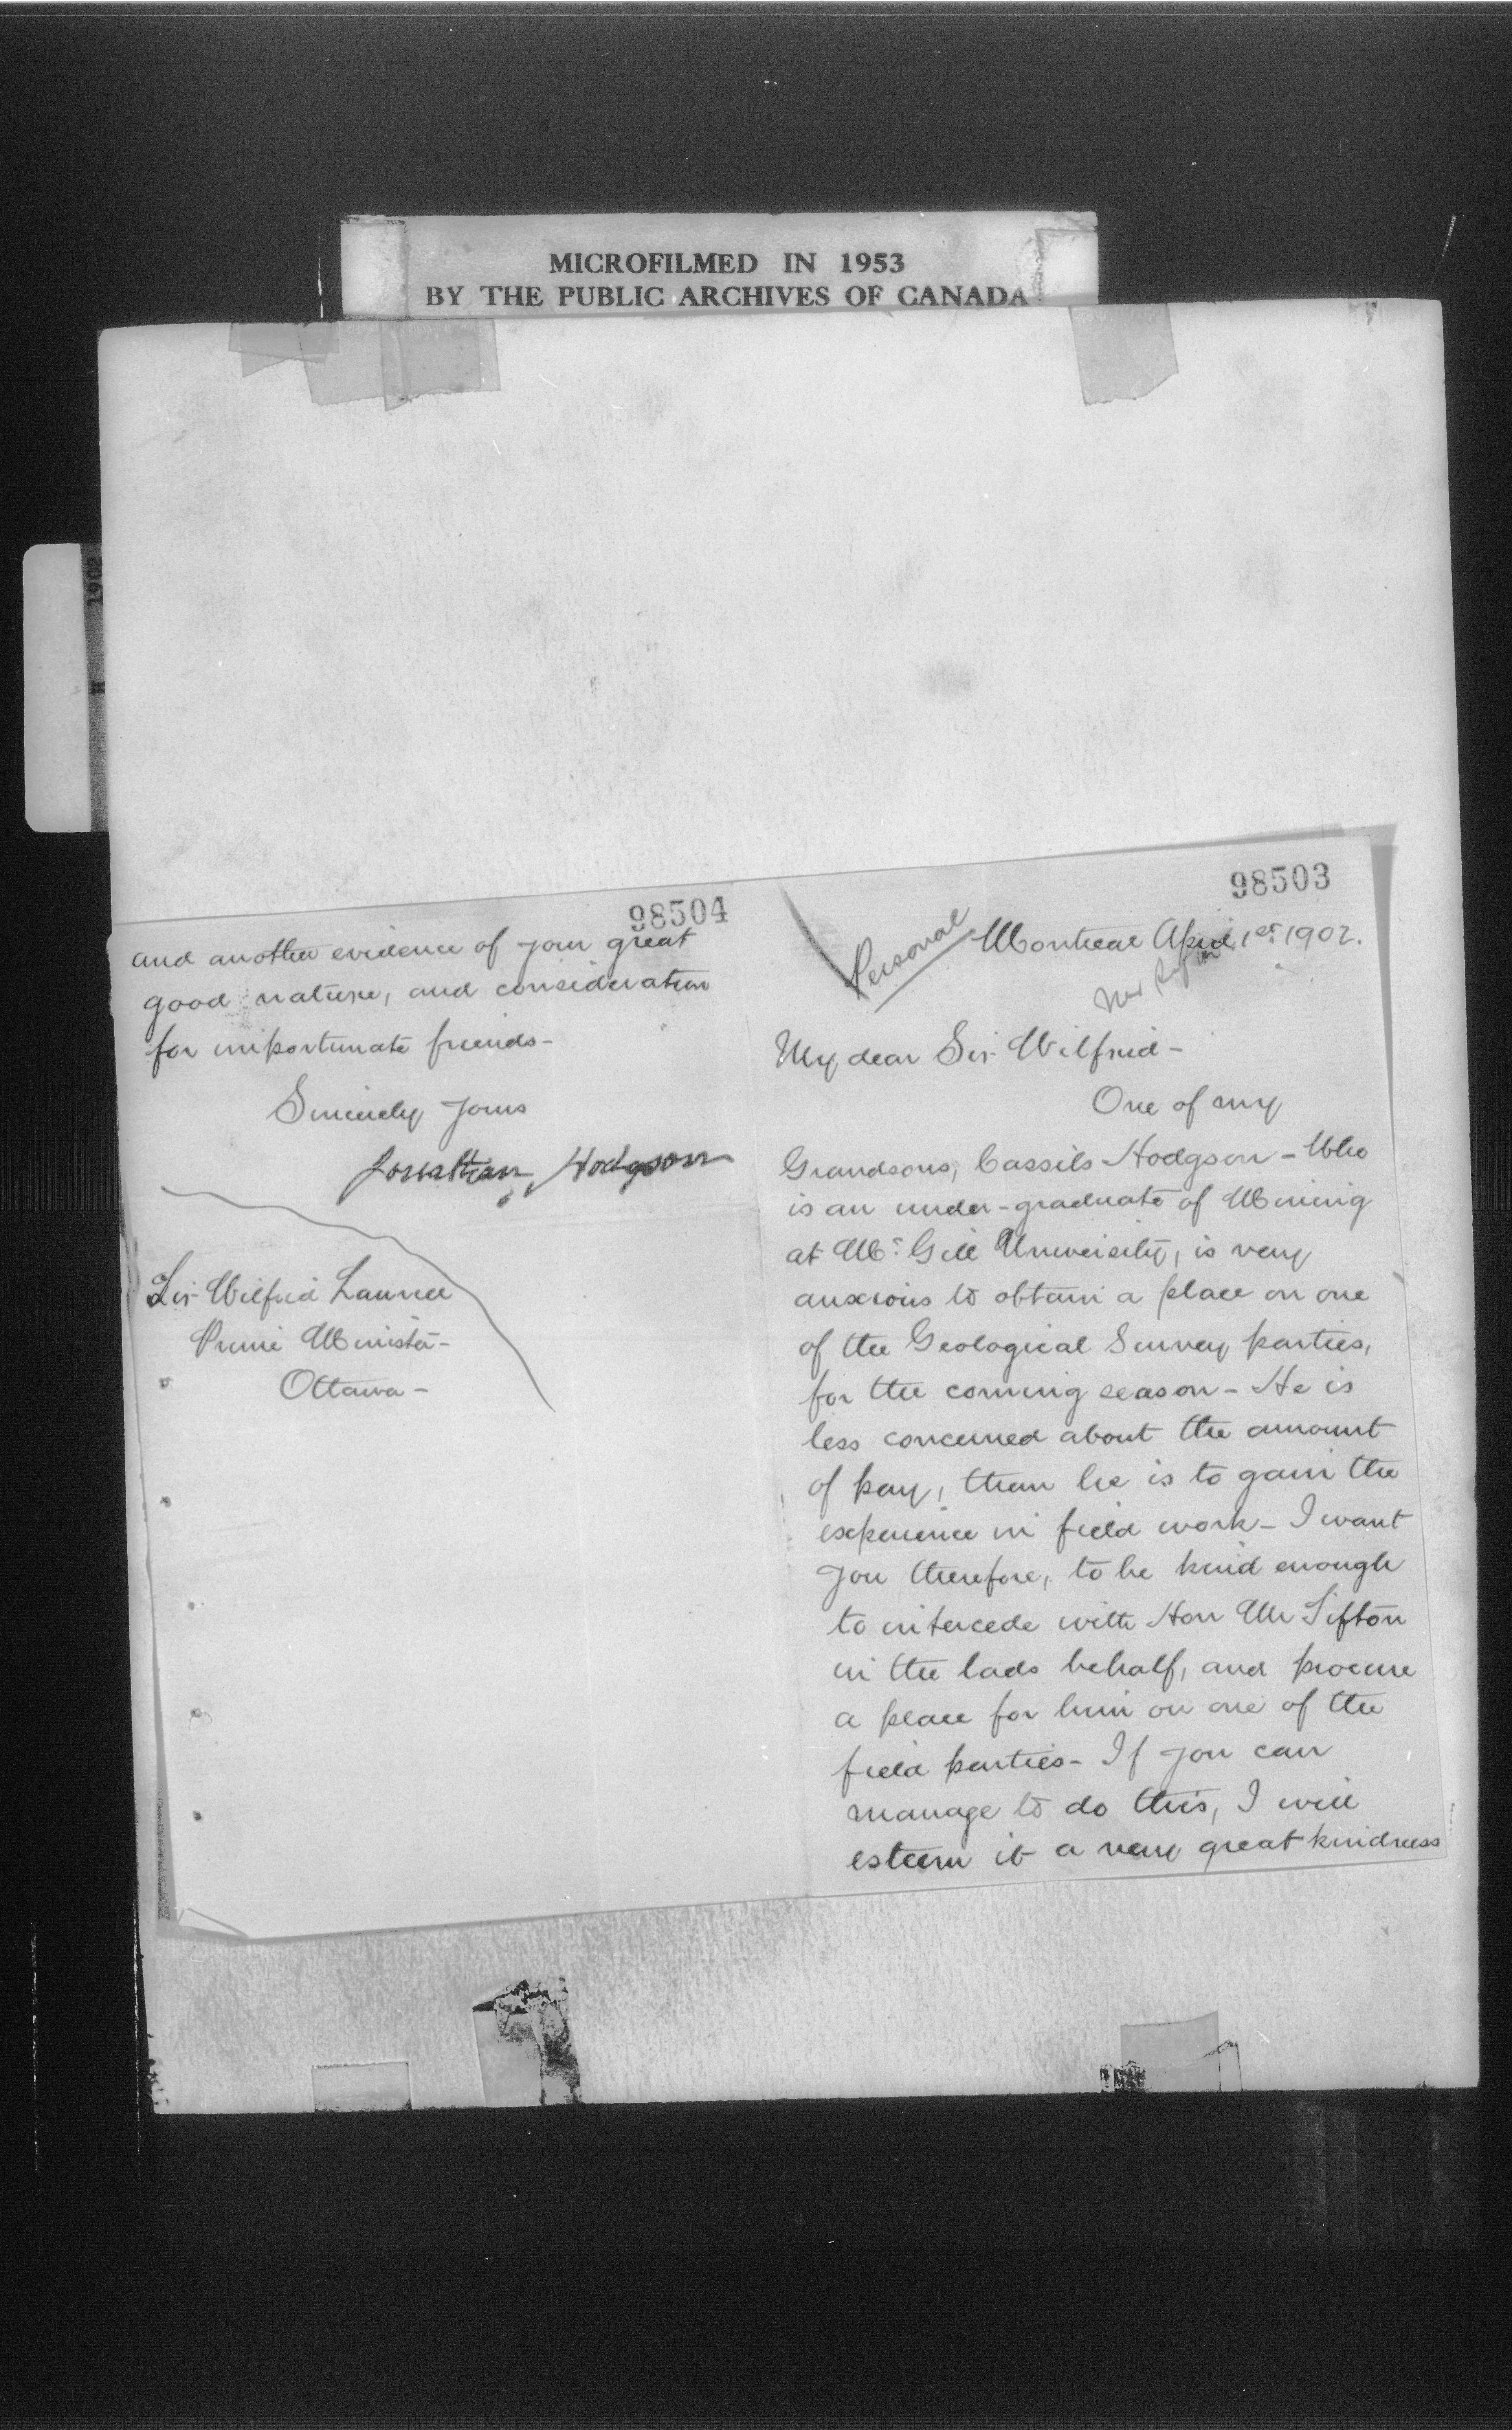 MICROFILMED IN 1953
BY THE PUBLIC ARCHIVES OF CANADA
1902
H
98503
Personal
Montreal April 1st 1902.
My dear Sir Wilfrid -
One of my
Grandsons, Cassils Hodgson - Who
is an under-graduate of Mining
at Mc Gill University, is very
anxious to obtain a place on one
of the Geological Survey parties,
for the coming season - He is
less concerned about the amount
of pay, than he is to gain the
experience in field work - I want
you therefore, to be kind enough
to intercede with Hon Mr Sifton
in the lads behalf, and procure
a place for him on one of the
field parties - If you can
manage to do this, I will
esteem it a very great kindness
98504
and another evidence of your great
good nature, and consideration
for importunate friends -
Sincerely Yours
Jonathan Hodgson
Sir Wilfrid Laurier
Prime Minister -
Ottawa -